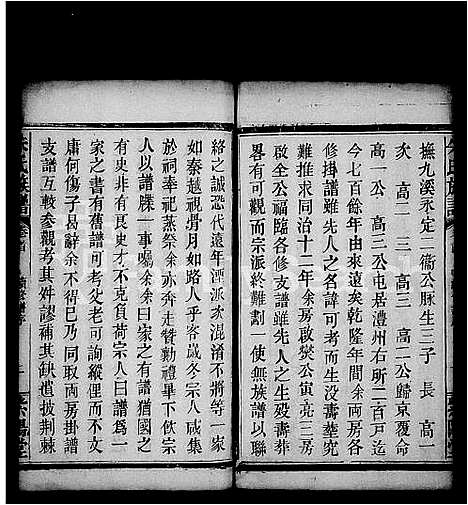 撫九溪永定二衞公豚生三子 長 高一
次 高二 三 高三 高二公歸京覆命
高一公 高三公屯居澧州右所二百戸迄
今七百餘年由來遠矣乾隆年間余兩房各
修掛譜雖先人之名諱可考而世遠年湮實
難推求同治十二年余房啟爕公寅亮三房
令全公福臨各修支譜雖先人之生殁壽葬
畧有可觀而宗派終難劃一使無族譜以聯
絡之誠恐代遠年湮派次混淆不將等一家
如秦越視骨月如路人乎客歲冬宗人咸集
於祠奉祀蒸祭余亦奔走贊勷禮畢下飲宗
人以譜牒一事囑余余曰家之有譜猶國之
有史非有良史才不克負荷宗人曰譜爲一
家之書有舊譜可考父老可詢縱俚而不文
庸何傷子曷辭余不得已乃同取兩房掛譜
支譜互較參觀考其舛謬補其缺遺披荆棘